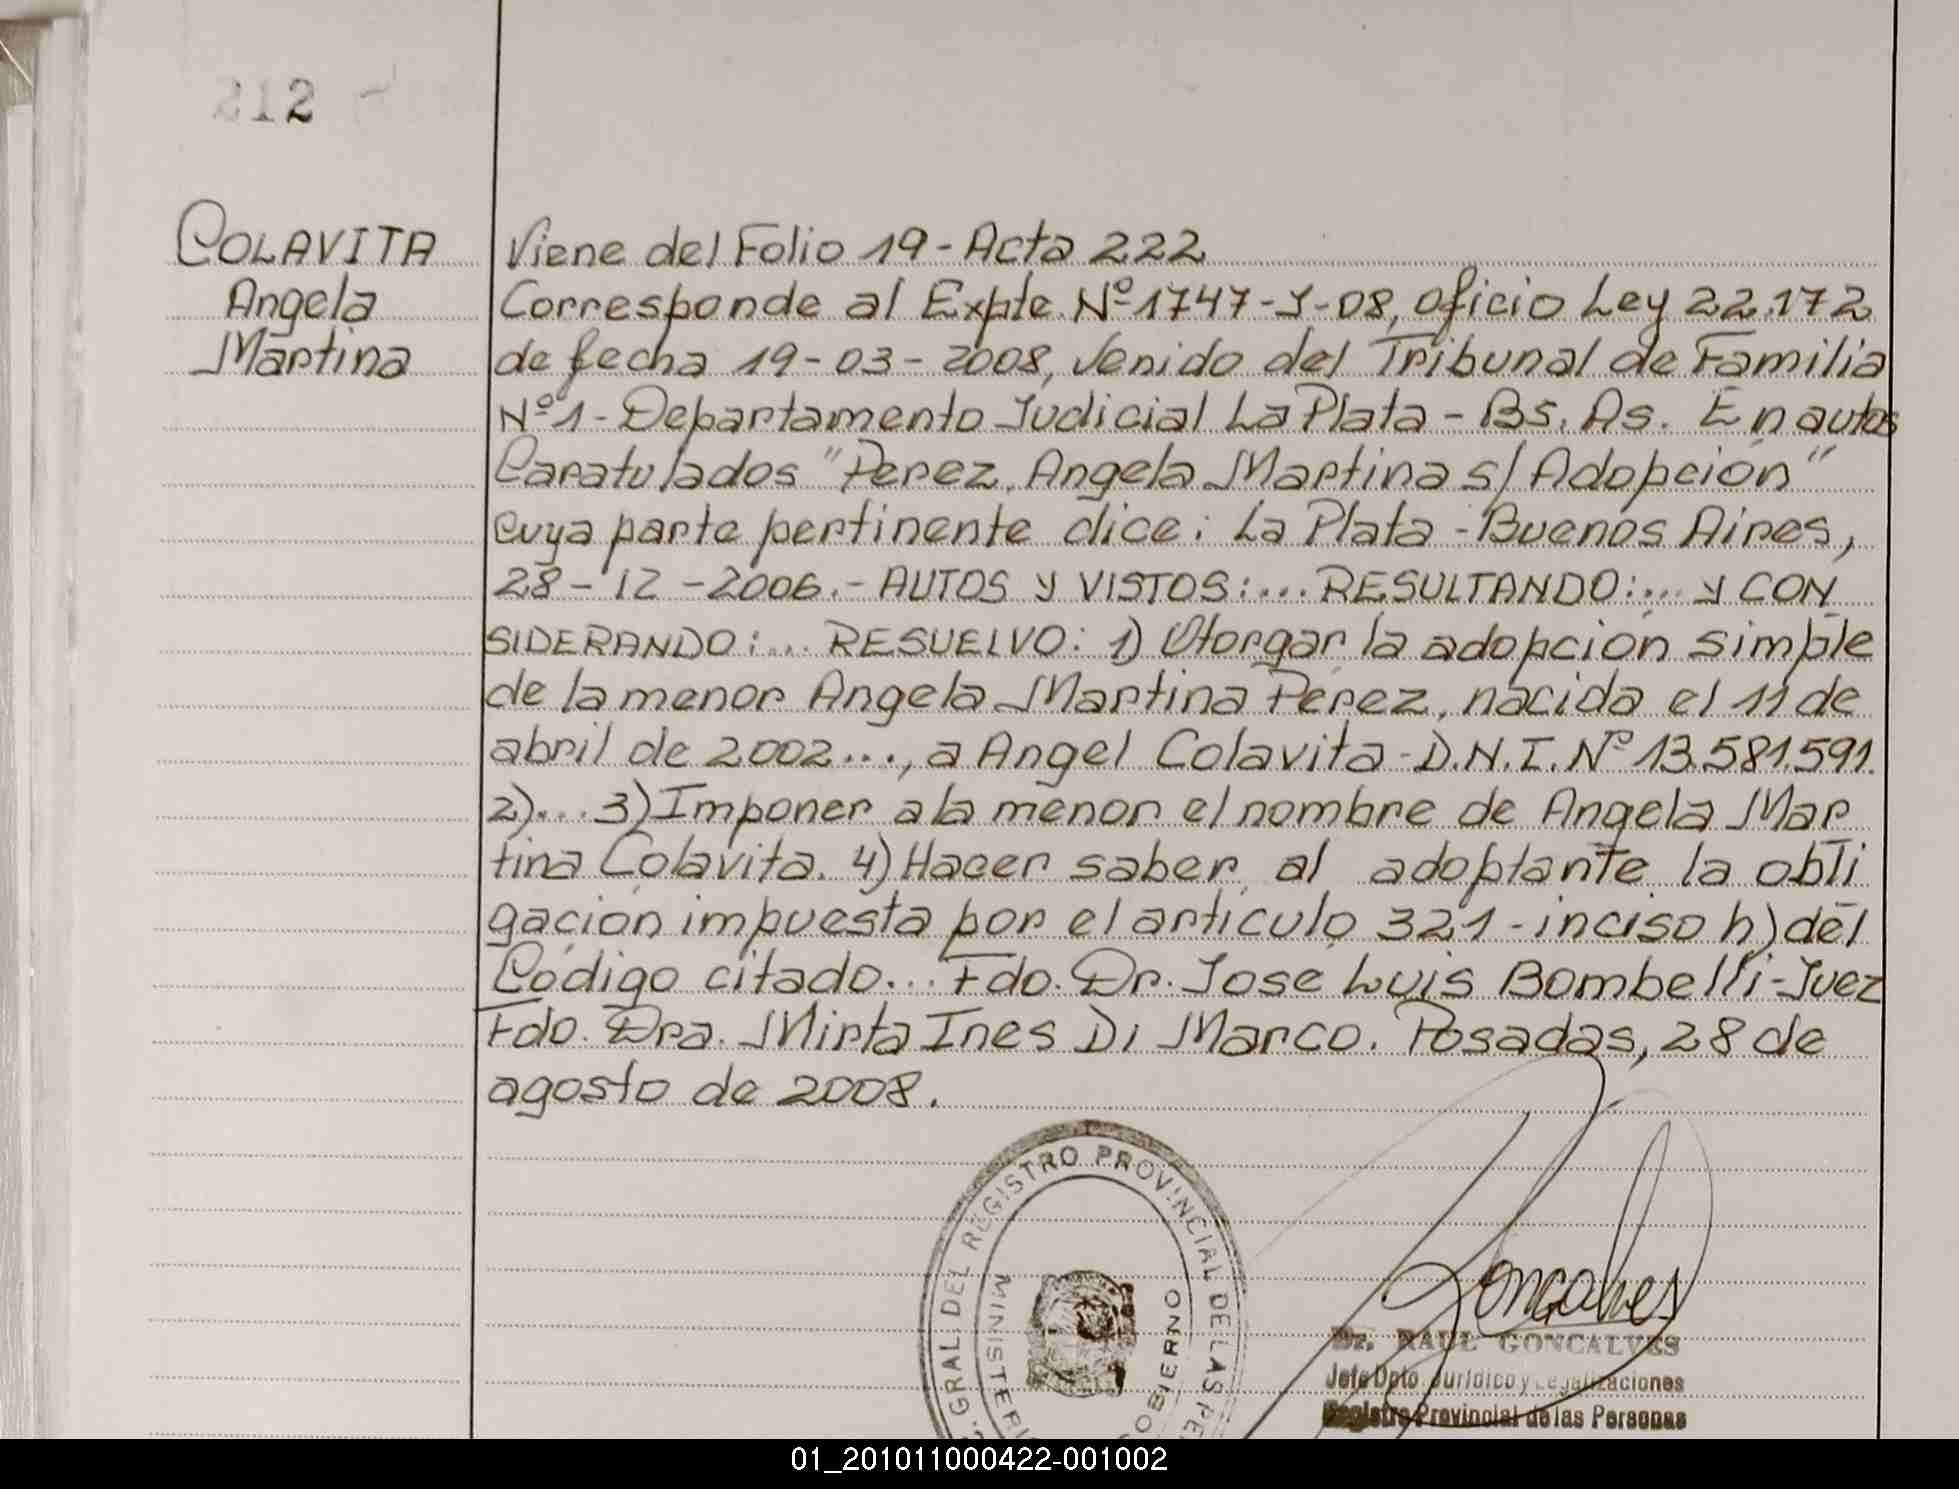 212
COLAVITA
Angela
Martina
Viene del Folio 19 - Acta 222
Corresponde al Expte. Nº 1747-J-08, oficio Ley 22.172
de fecha 19-03-2008, venido del Tribunal de Familia
Nº 1 - Departamento Judicial La Plata - Bs. As. En autos
Caratulados "Perez, Angela Martina s/ Adopción"
cuya parte pertinente dice: La Plata - Buenos Aires,
28-12-2006.- AUTOS Y VISTOS:... RESULTANDO:... y CON
SIDERANDO:... RESUELVO: 1) Otorgar la adopción simple
de la menor Angela Martina Pérez, nacida el 11 de
abril de 2002..., a Angel Colavita - D.N.I. Nº 13.581.591.
2)... 3) Imponer a la menor el nombre de Angela Mar
tina Colavita. 4) Hacer saber al adoptante la obli
gación impuesta por el artículo 321 - inciso h) del
Código citado... Fdo. Dr. José Luis Bombelli - Juez
Fdo. Dra. Mirta Ines Di Marco. Posadas, 28 de
agosto de 2008.
GRAL. DEL REGISTRO PROVINCIAL DE LAS
GOBIERNO
Goncalves
Dr. RAUL GONCALVES
Jefe Dpto. Jurídico y Legalizaciones
Registro Provincial de las Personas
01_201011000422-001002